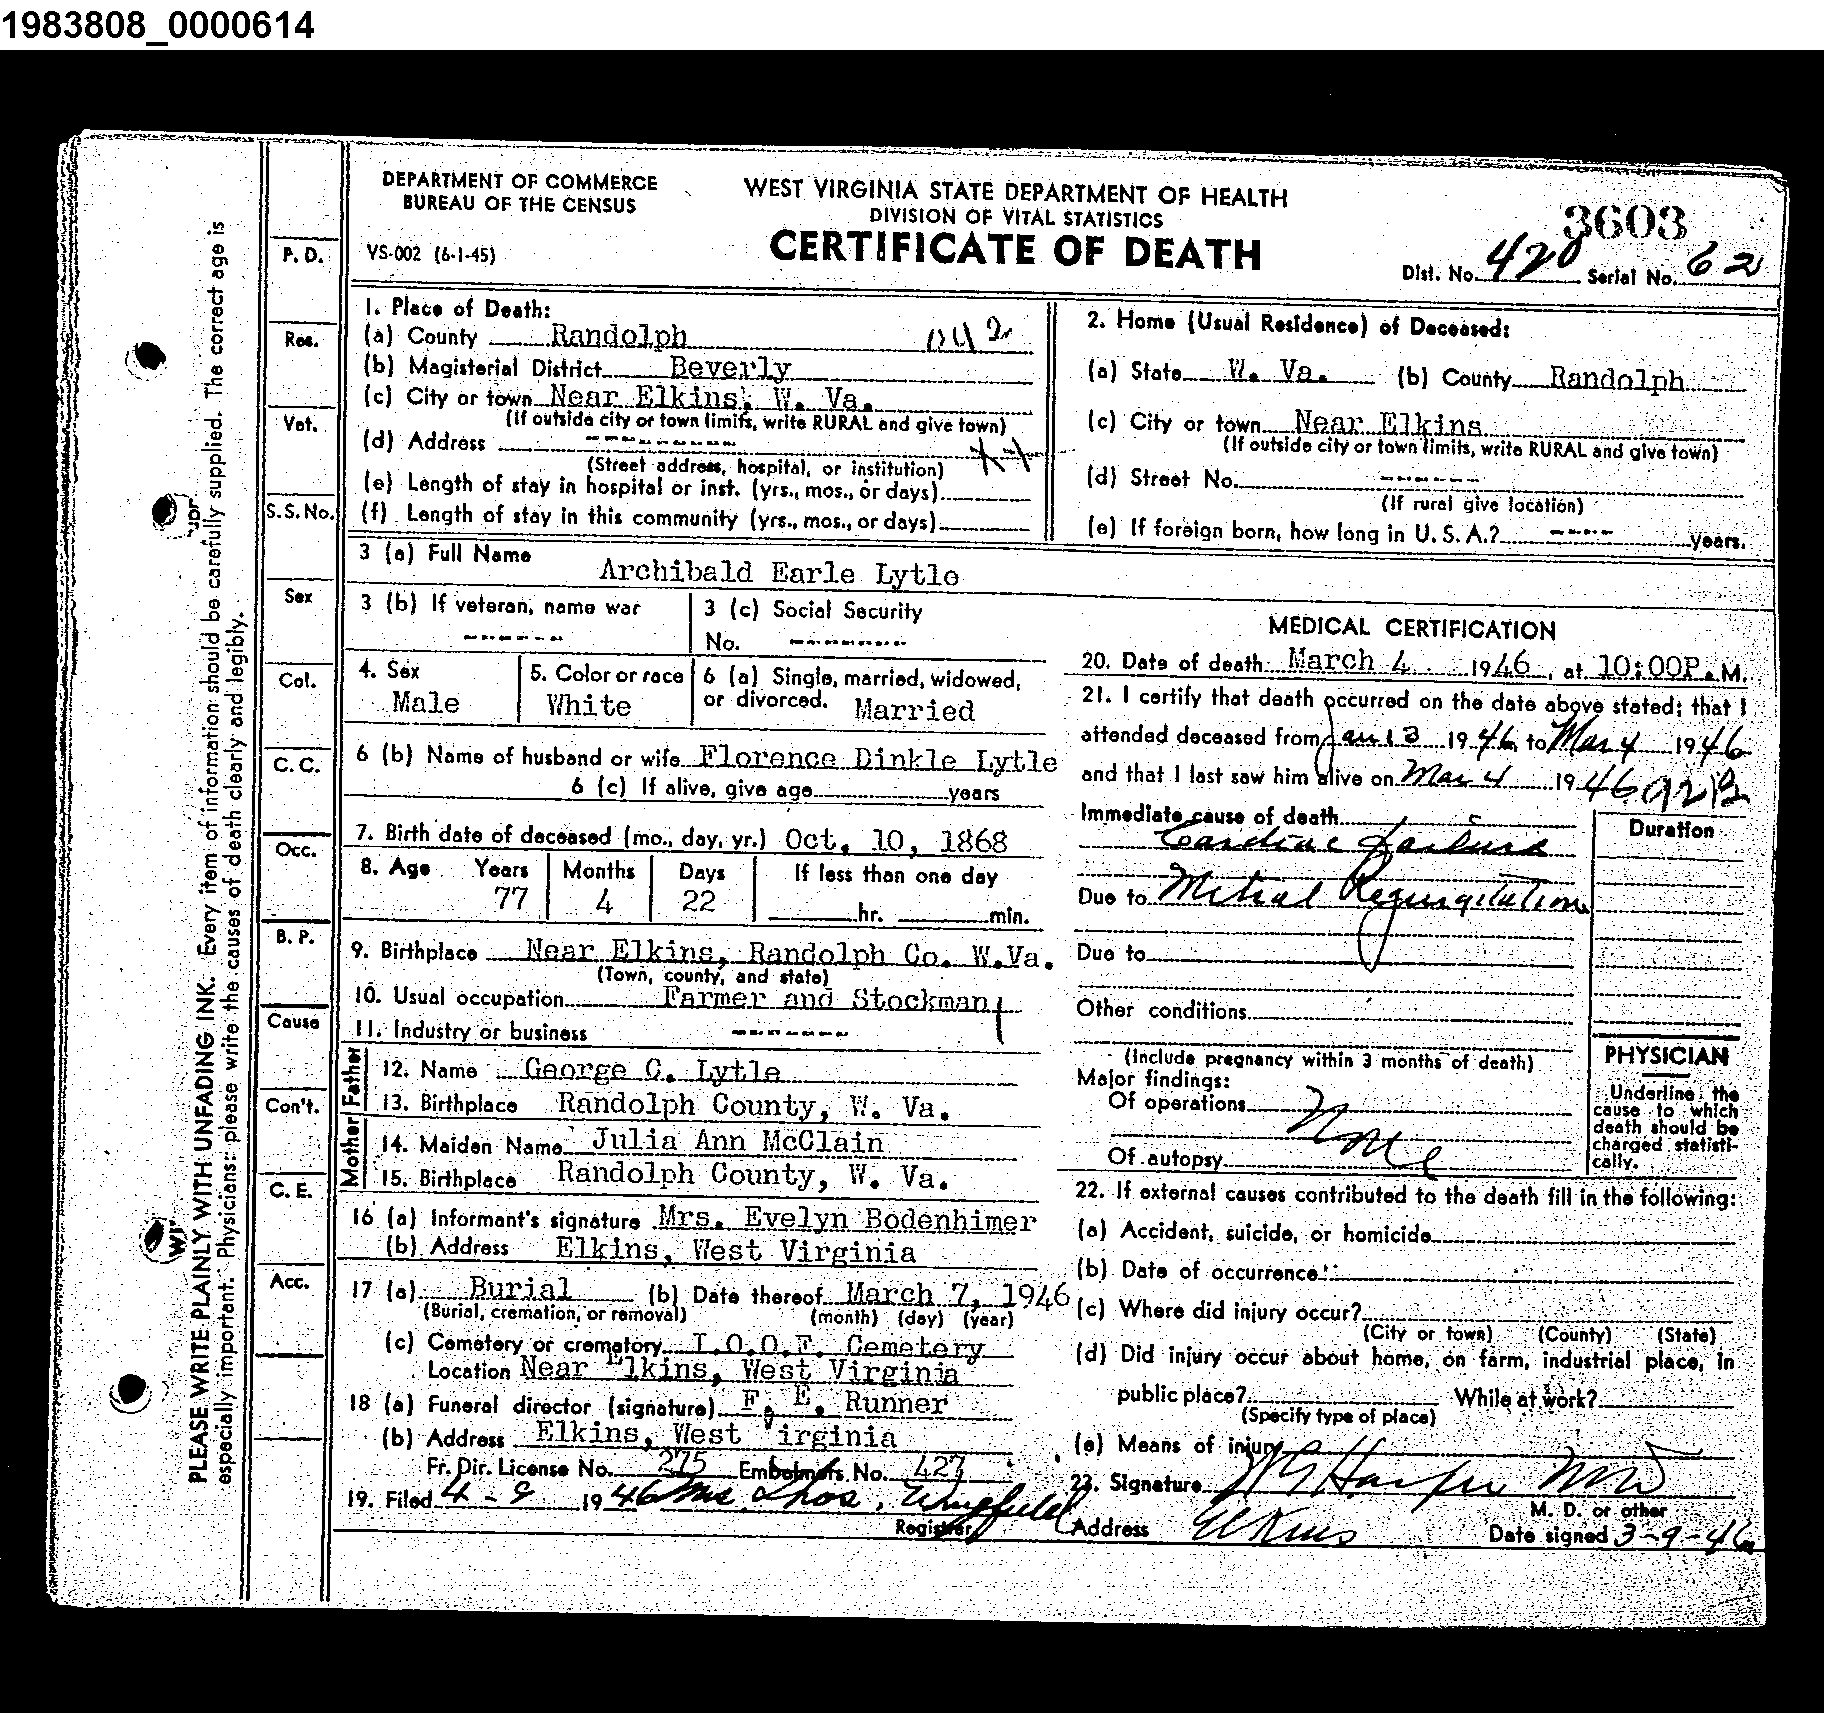 1983808_0000614
DEPARTMENT OF COMMERCE
BUREAU OF THE CENSUS
VS-002 (6-1-45)
WEST VIRGINIA STATE DEPARTMENT OF HEALTH
DIVISION OF VITAL STATISTICS
CERTIFICATE OF DEATH
3603
Dist. No. 420 Serial No. 62
PLEASE WRITE PLAINLY WITH UNFADING INK. Every item of information should be carefully supplied. The correct age is
especially important. Physicians: please write the causes of death clearly and legibly.
P. D.
Res.
Vet.
S.S. No.
Sex
Col.
C. C.
Occ.
B. P.
Cause
Con't.
C. E.
Acc.
1. Place of Death:
(a) County Randolph 042
(b) Magisterial District Beverly
(c) City or town Near Elkins, W. Va.
(If outside city or town limits, write RURAL and give town)
(d) Address -------
(Street address, hospital, or institution)
(e) Length of stay in hospital or inst. (yrs., mos., or days)
(f) Length of stay in this community (yrs., mos., or days)
2. Home (Usual Residence) of Deceased:
(a) State W. Va. (b) County Randolph
(c) City or town Near Elkins
(If outside city or town limits, write RURAL and give town)
(d) Street No. ------
(If rural give location)
(e) If foreign born, how long in U. S. A.? ---- years.
3 (a) Full Name Archibald Earle Lytle
3 (b) If veteran, name war ------
3 (c) Social Security
No. -------
4. Sex Male
5. Color or race White
6 (a) Single, married, widowed,
or divorced. Married
6 (b) Name of husband or wife Florence Dinkle Lytle
6 (c) If alive, give age years
7. Birth date of deceased (mo., day, yr.) Oct. 10, 1868
8. Age Years Months Days If less than one day
77 4 22 hr. min.
9. Birthplace Near Elkins, Randolph Co. W.Va.
(Town, county, and state)
10. Usual occupation Farmer and Stockman
11. Industry or business -------
Father
12. Name George C. Lytle
13. Birthplace Randolph County, W. Va.
Mother
14. Maiden Name Julia Ann McClain
15. Birthplace Randolph County, W. Va.
16 (a) Informant's signature Mrs. Evelyn Bodenhimer
(b) Address Elkins, West Virginia
17 (a) Burial (b) Date thereof March 7, 1946
(Burial, cremation, or removal) (month) (day) (year)
(c) Cemetery or crematory I.O.O.F. Cemetery
Location Near Elkins, West Virginia
18 (a) Funeral director (signature) F. E. Runner
(b) Address Elkins, West Virginia
Fr. Dir. License No. 275 Embalmers No. 427
19. Filed 4-9 1946 Mrs. Thos. Wingfield
Registrar
MEDICAL CERTIFICATION
20. Date of death: March 4 1946, at 10:00P.M.
21. I certify that death occurred on the date above stated; that I
attended deceased from Jan 13 1946 to Mar 4 1946
and that I last saw him alive on Mar 4 1946 92B
Immediate cause of death
Cardiac failure
Due to Mitral Regurgitation
Due to
Other conditions
(Include pregnancy within 3 months of death)
Major findings:
Of operations None
Of autopsy
Duration
PHYSICIAN
Underline the
cause to which
death should be
charged statisti-
cally.
22. If external causes contributed to the death fill in the following:
(a) Accident, suicide, or homicide
(b) Date of occurrence
(c) Where did injury occur?
(City or town) (County) (State)
(d) Did injury occur about home, on farm, industrial place, in
public place? While at work?
(Specify type of place)
(e) Means of injury
23. Signature W G Harper MD
M. D. or other
Address Elkins Date signed 3-9-46